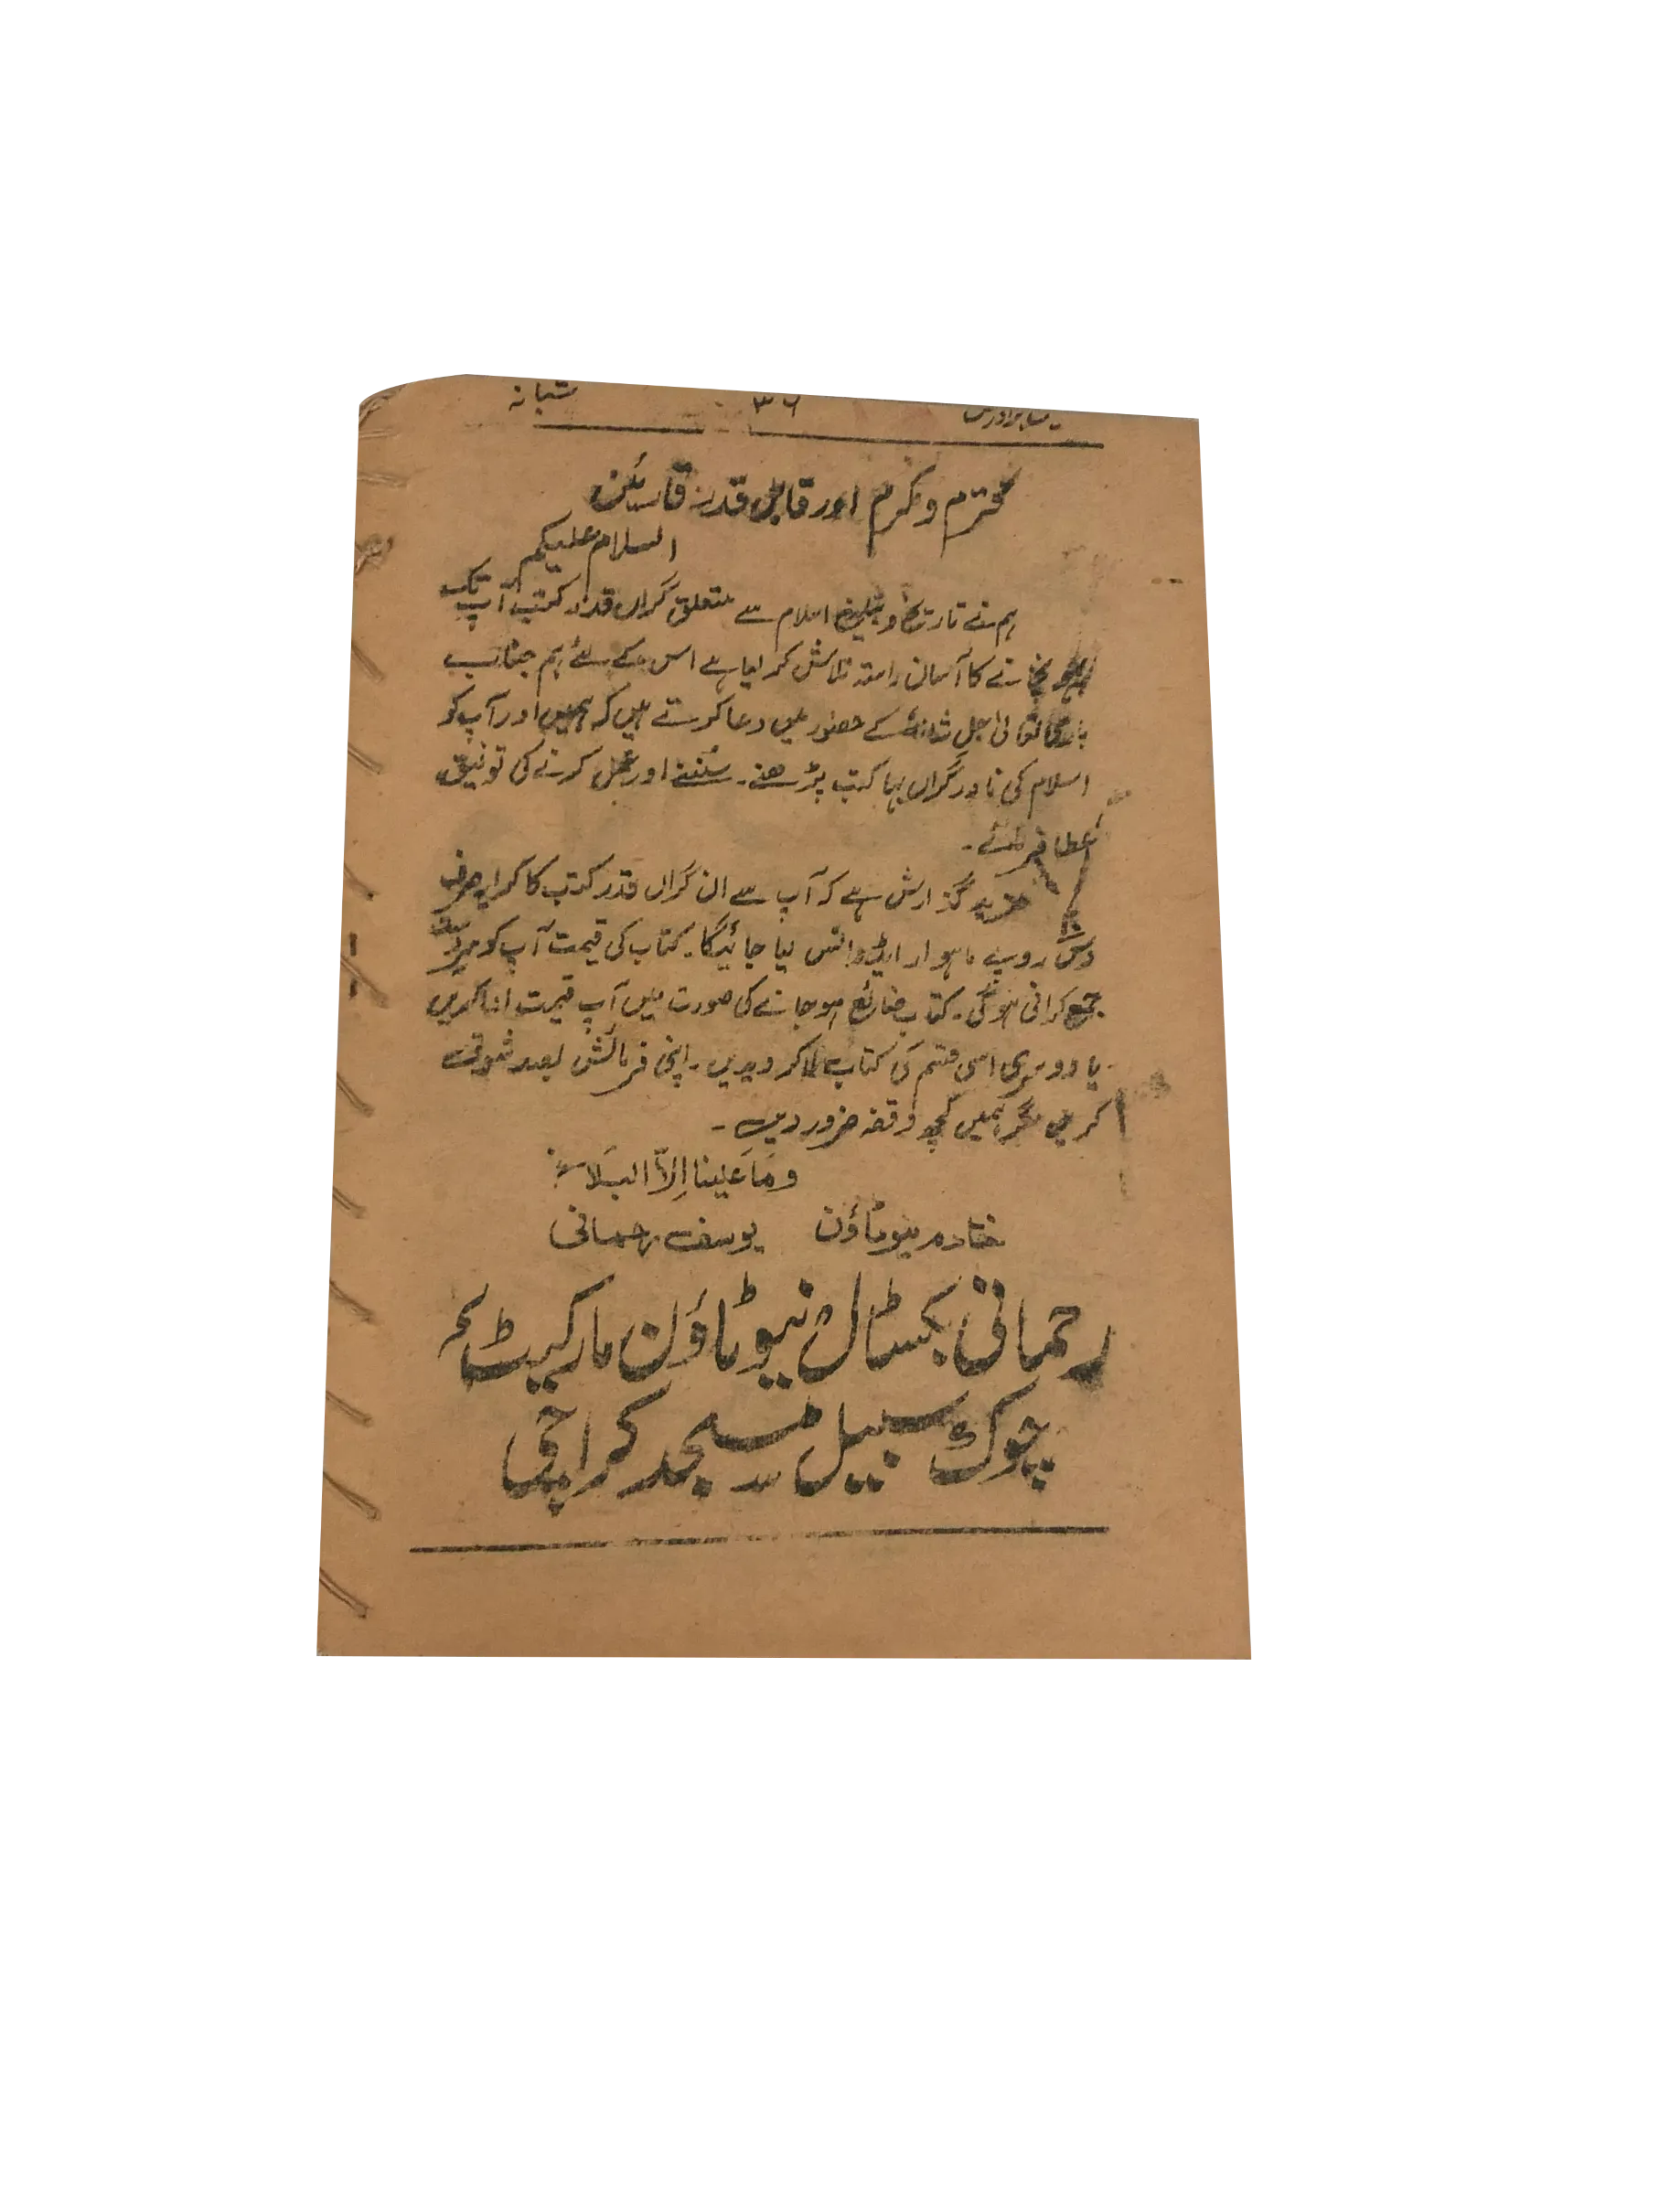 شبانہ ۳۶
محترم و مکرم اور قابل قدر قارئین
السلام علیکم
ہم نے تاریخ و تبلیغ اسلام سے متعلق گراں قدر کتب آپ تک
پہنچانے کا آسان راستہ تلاش کر لیا ہے اس کے لئے ہم جناب
باری تعالیٰ اجل شانہٗ کے حضور میں دعا کرتے ہیں کہ ہمیں اور آپ کو
اسلام کی نادر گراں بہا کتب پڑھنے۔ سُننے اور عمل کرنے کی توفیق
عطا فرمائے۔
مزید گزارش ہے کہ آپ سے ان گراں قدر کتب کا کرایہ صرف
دس روپے ماہوار ایڈوانس لیا جائیگا۔ کتاب کی قیمت آپ کو
جمع کرانی ہوگی۔ کتاب ضائع ہو جانے کی صورت میں آپ قیمت ادا کریں
یا دوسری اسی قسم کی کتاب لاکر دیدیں۔ اپنی فرمائش بصد شوق
کریں مگر ہمیں کچھ وقفہ ضرور دیں۔
وما علینا اِلاّ البلاغ
خادم نیو ٹاؤن یوسف رحمانی
رحمانی بکسٹال نیو ٹاؤن مارکیٹ
چوک سبیل مسجد کراچی